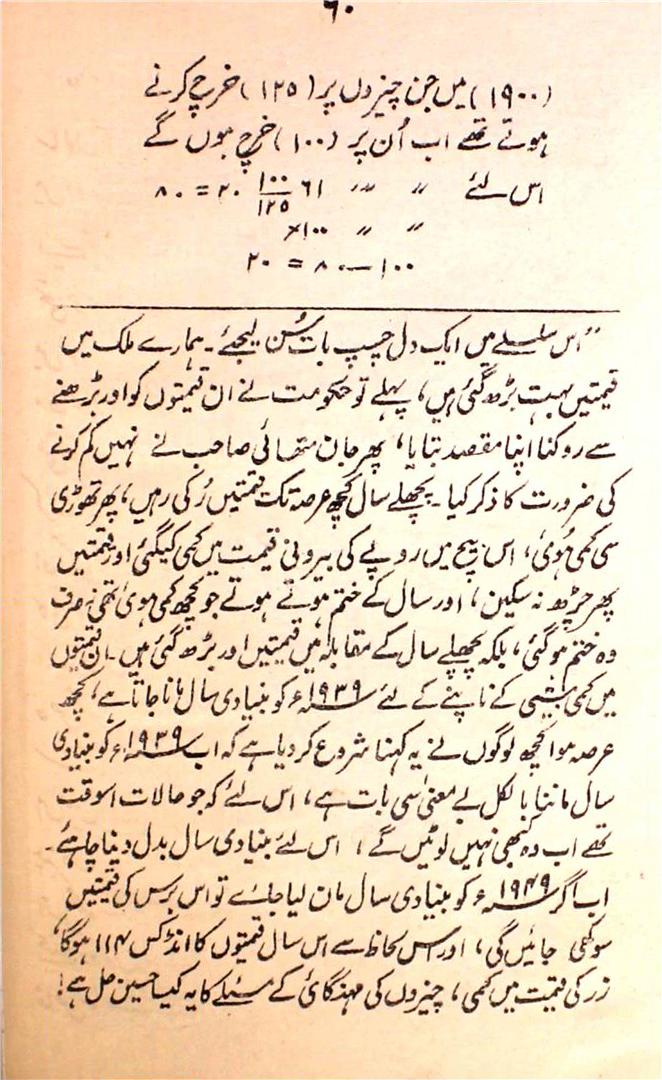 ۶۰
(۱۹۰۰) میں جن چیزوں پر (۱۲۵) خرچ کرنے
ہوتے تھے اب اُن پر (۱۰۰) خرچ ہوں گے
اس لئے " " " ۱۶ ۱۰۰/۱۲۵ ۲۰ = ۸۰
" " " ۱۰۰×
۱۰۰ — ۸۰ = ۲۰
"اس سلسلے میں ایک دل چسپ بات سُن لیجئے۔ ہمارے ملک میں
قیمتیں بہت بڑھ گئی ہیں، پہلے تو حکومت نے ان قیمتوں کو اور بڑھنے
سے روکنا اپنا مقصد بتایا، پھر جان متھائی صاحب نے نہیں کم کرنے
کی ضرورت کا ذکر کیا۔ پچھلے سال کچھ عرصہ تک قیمتیں رُکی رہیں، پھر تھوڑی
سی کمی ہُوئی، اس بیچ میں روپے کی بیرونی قیمت میں کمی کیگئی اور قیمتیں
پھر چڑھ نہ سکیں، اور سال کے ختم ہوتے ہوتے جو کچھ کمی ہوئی تھی نہ صرف
وہ ختم ہو گئی، بلکہ پچھلے سال کے مقابلہ میں قیمتیں اور بڑھ گئی ہیں۔ ان قیمتوں
میں کمی بیشی کے ناپنے کے لئے ۱۹۳۹ء کو بنیادی سال مانا جاتا ہے، کچھ
عرصہ ہوا کچھ لوگوں نے یہ کہنا شروع کر دیا ہے کہ اب ۱۹۳۹ء کو بنیادی
سال ماننا بالکل بے معنی سی بات ہے، اس لئے کہ جو حالات اسوقت
تھے اب وہ کبھی نہیں لوٹیں گے، اس لئے بنیادی سال بدل دینا چاہئے۔
اب اگر ۱۹۴۹ء کو بنیادی سال مان لیا جائے تو اس برس کی قیمتیں
سو کہی جائیں گی، اور اس لحاظ سے اس سال قیمتوں کا انڈکس ۱۱۴ ہوگا،
زر کی قیمت میں کمی، چیزوں کی مہنگائی کے مسئلے کا یہ کیا حسین حل ہے!